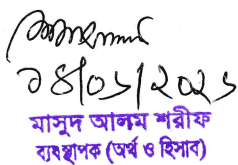 ১৪/০৬/২০২৬
মাসুদ আলম শরীফ
ব্যবস্থাপক (অর্থ ও হিসাব)